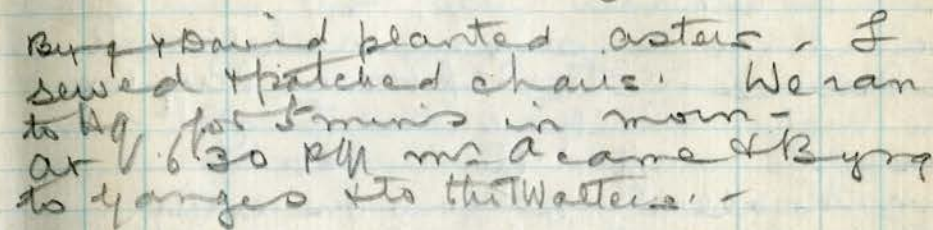 Byrg & David planted asters, - I
sewed & patched chairs. We ran
to Hq for 5 mins in morn -
at 6 30 PM Mr A came & Byrg
to Ganges & to the Walters. -